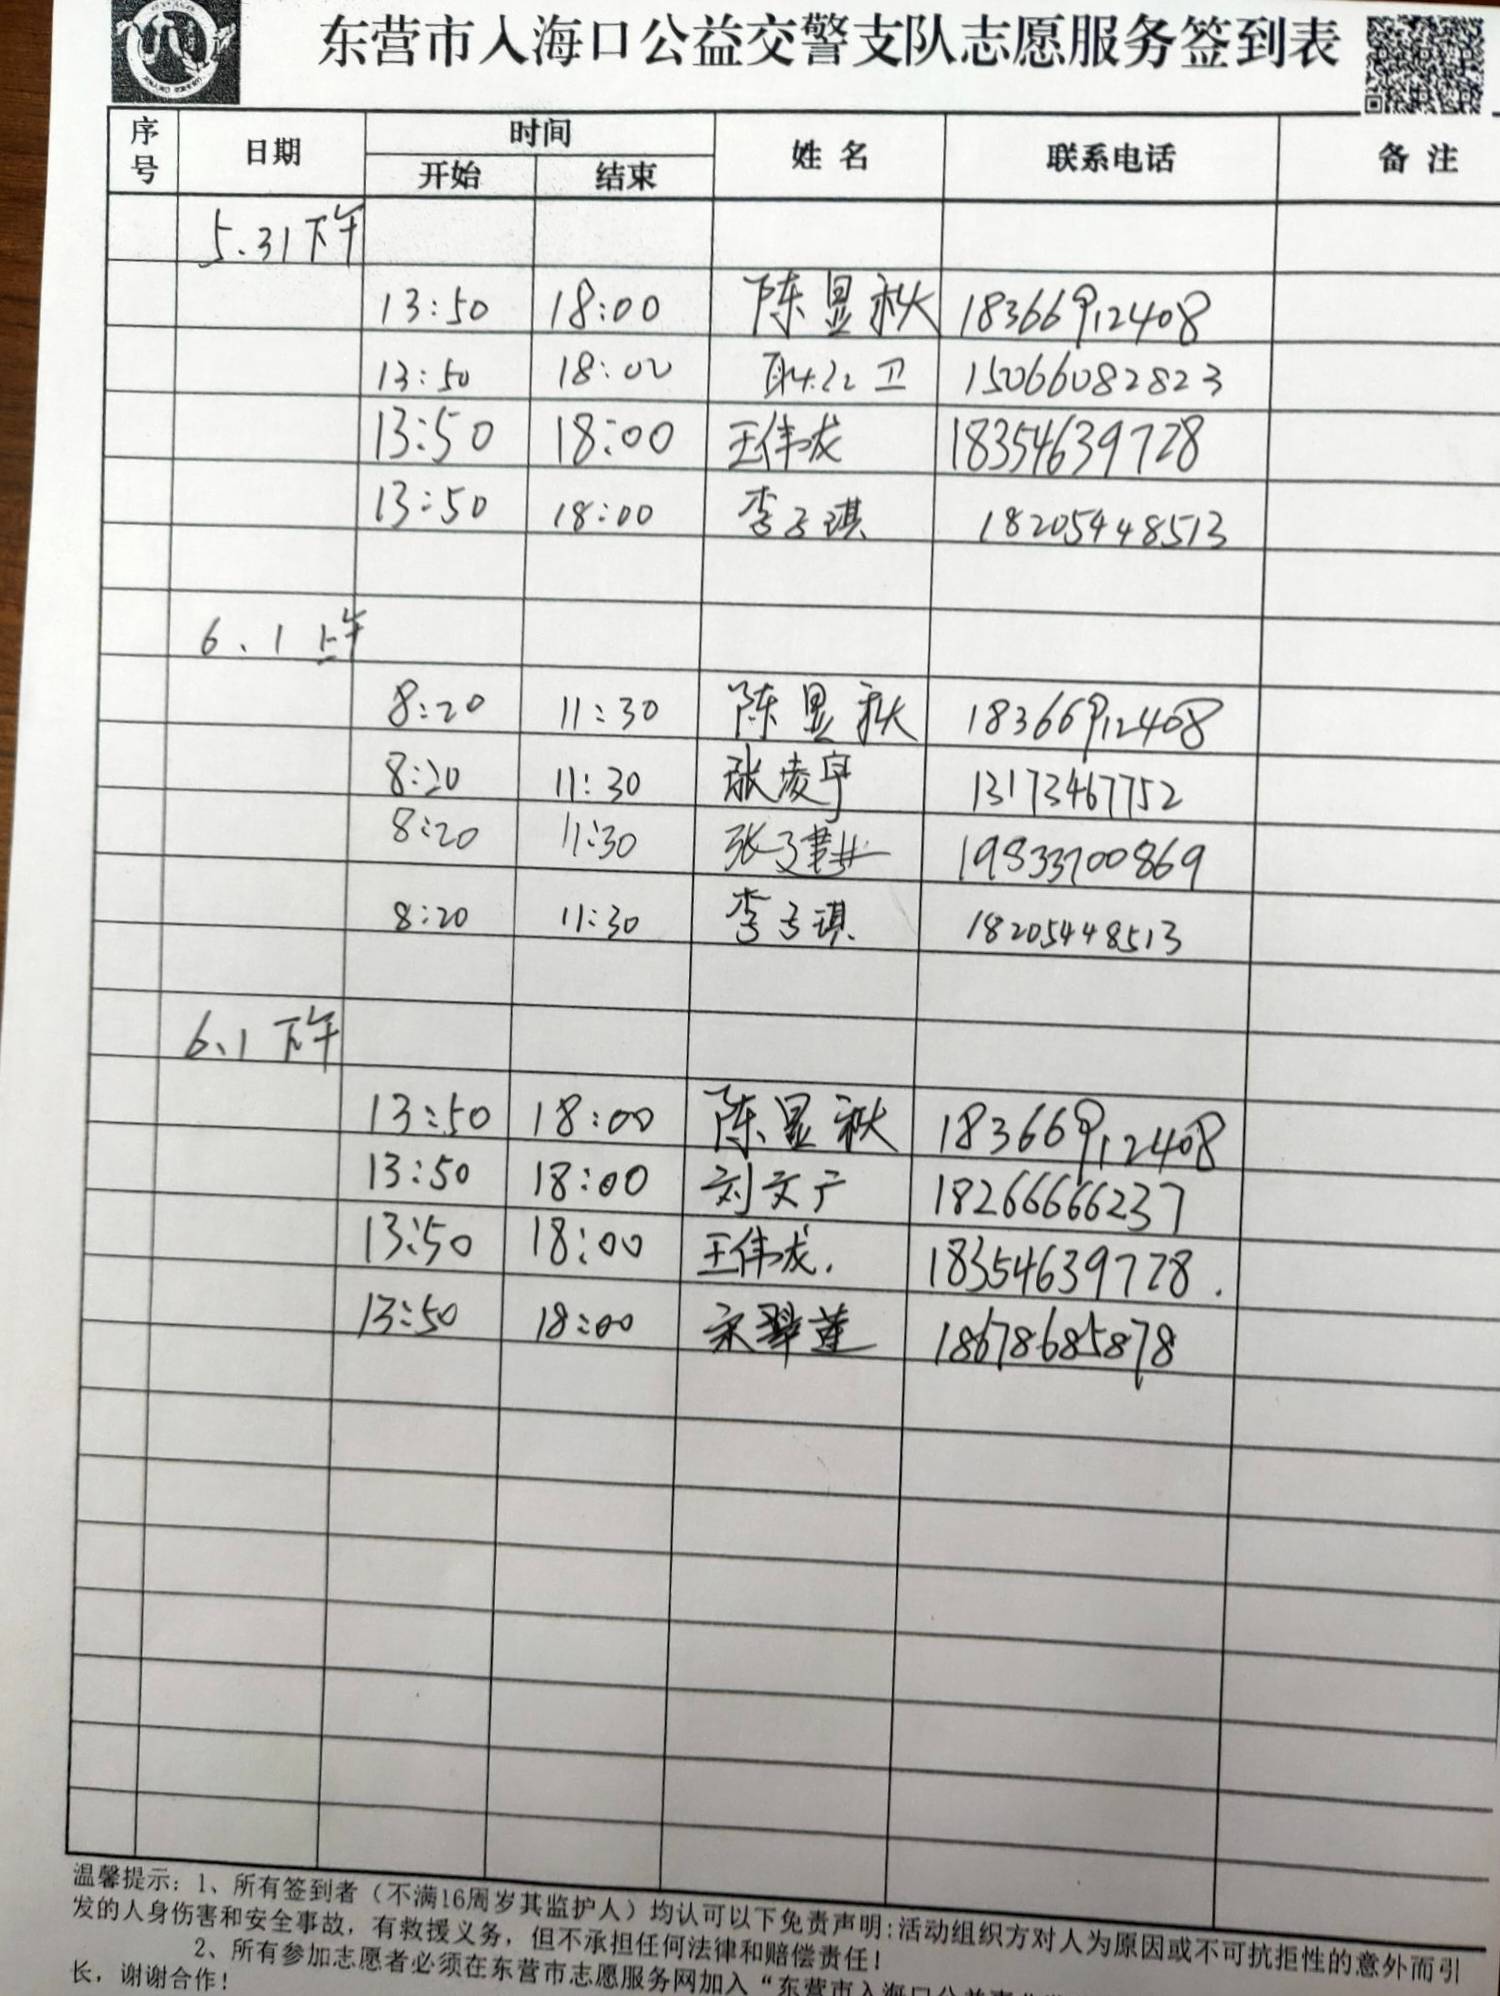 东营市入海口公益交警支队志愿服务签到表
序号 日期 时间 姓名 联系电话 备注
开始 结束
5.31下午
13:50 18:00 陈显秋 18366912408
13:50 18:00 卫 15066082823
13:50 18:00 王伟成 18354639728
13:50 18:00 李子琪 18205448513
6.1上午
8:20 11:30 陈显秋 18366912408
8:20 11:30 张凌宇 13173467752
8:20 11:30 张子 19833700869
8:20 11:30 李子琪 18205448513
6.1下午
13:50 18:00 陈显秋 18366912408
13:50 18:00 刘文广 18266666237
13:50 18:00 王伟成. 18354639728.
13:50 18:00 宋翠莲 18678685878
温馨提示：1、所有签到者（不满16周岁其监护人）均认可以下免责声明:活动组织方对人为原因或不可抗拒性的意外而引
发的人身伤害和安全事故，有救援义务，但不承担任何法律和赔偿责任！
2、所有参加志愿者必须在东营市志愿服务网加入“东营市入海口公益
长，谢谢合作！